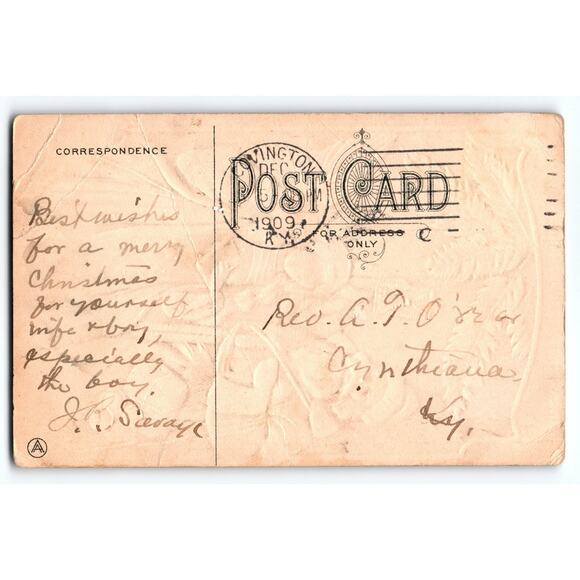 CORRESPONDENCE
POST CARD
FOR ADDRESS
ONLY
OVINGTON
DEC
1909
KY
Best wishes
for a merry
Christmas
for yourself
wife & boy,
especially
the boy.
J. R. Savage
Rev. A. T. O'rear
Cynthiana
Ky.
A